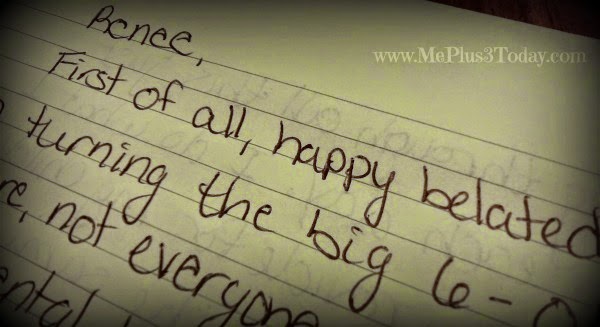 Renee,
www.MePlus3Today.com
First of all, happy belated
turning the big 6-0
re, not everyone
ental